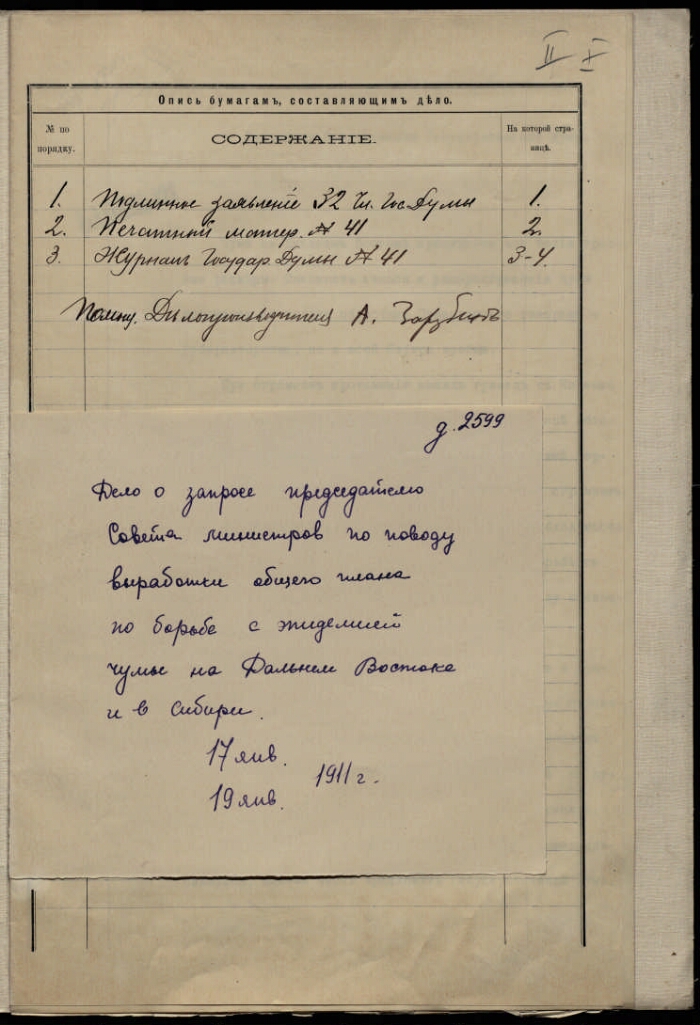 II I
Опись бумагамъ, составляющимъ дѣло.
№ по порядку.
СОДЕРЖАНІЕ.
На которой стра-
ницѣ.
1. Подлинное заявленіе 32 Чл. Гос. Думы 1.
2. Печатный матер. № 41 2.
3. Журналъ Государ. Думы № 41 3-4.
Помощ. Дѣлопроизводителя А.
д. 2599
Дело о запросе председателю
Совета министров по поводу
выработки общего плана
по борьбе с эпидемией
чумы на Дальнем Востоке
и в Сибири.
17 янв.
1911 г.
19 янв.